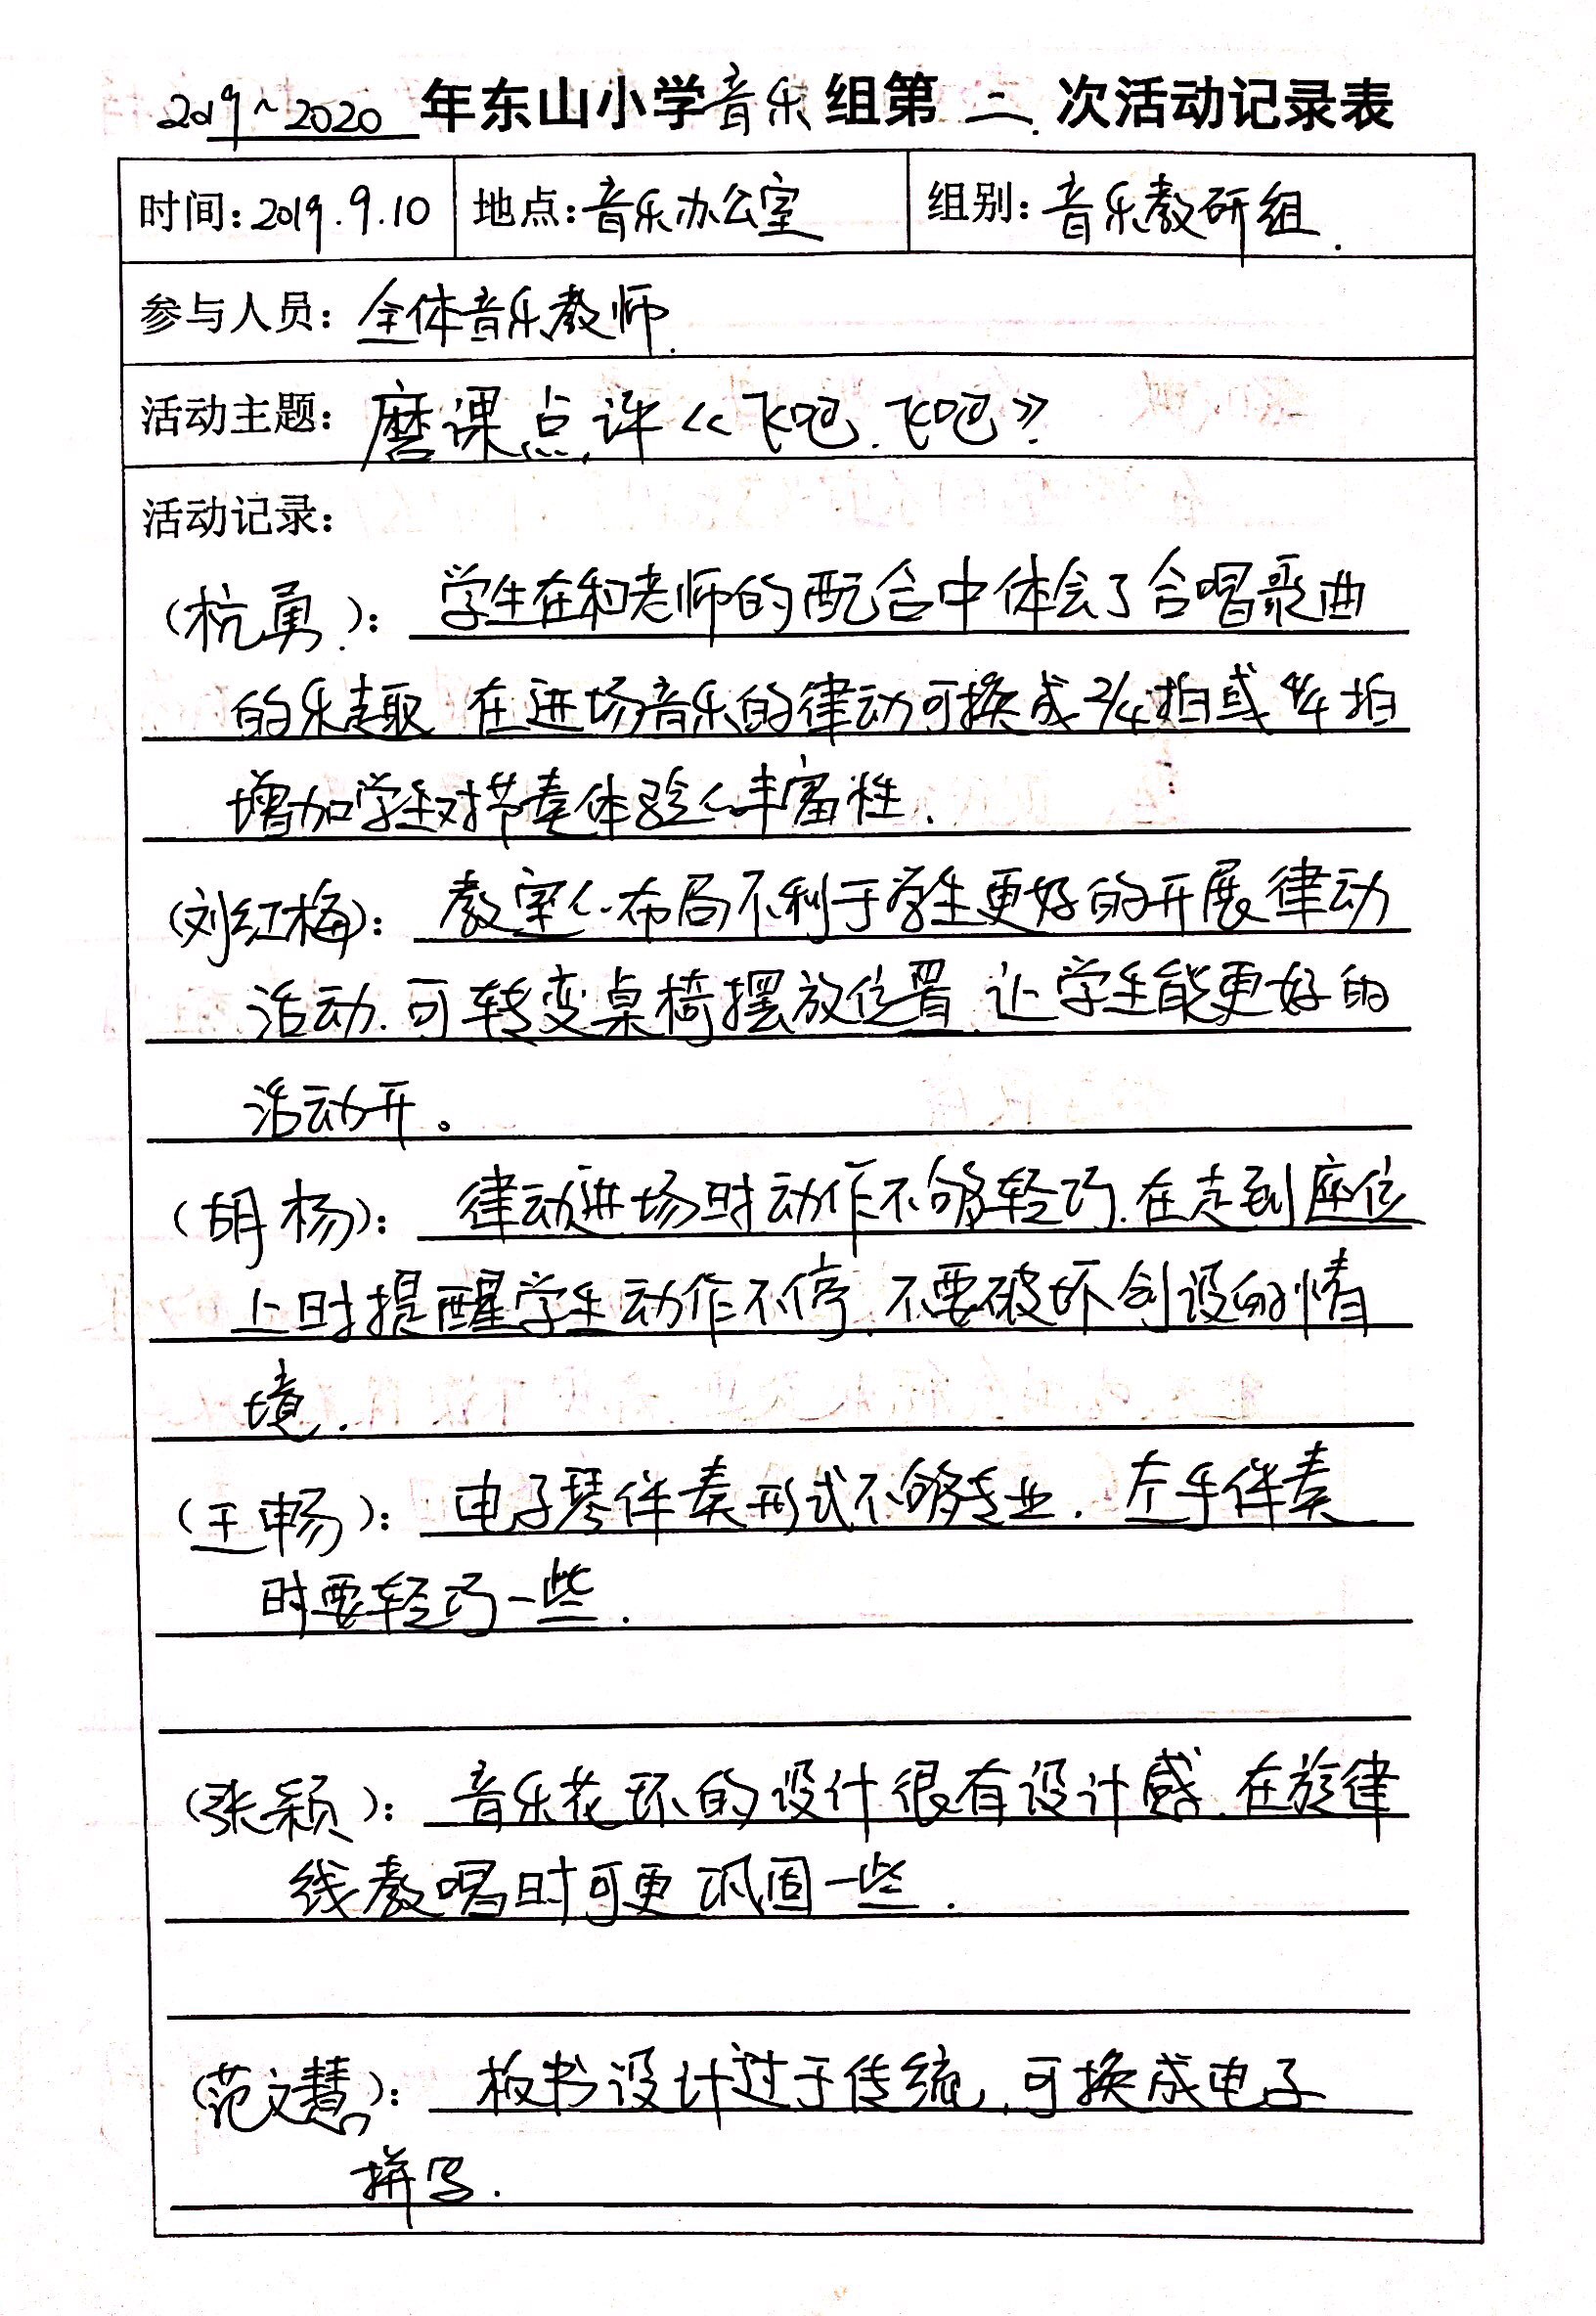 2019~2020年东山小学音乐组第二次活动记录表
时间:2019.9.10 地点:音乐办公室 组别:音乐教研组.
参与人员:全体音乐教师.
活动主题:磨课点评《飞吧.飞吧》
活动记录:
(杭勇):学生在和老师的配合中体会了合唱歌曲
的乐趣.在进场音乐的律动可换成2/4拍或4/4拍
增加学生对节奏体验的丰富性.
(刘红梅):教室的布局不利于学生更好的开展律动
活动.可转变桌椅摆放位置.让学生能更好的
活动开。
(胡杨):律动进场时动作不够轻巧.在走到座位
上时提醒学生动作不停.不要破坏创设的情
境.
(王畅):电子琴伴奏形式不够专业.左手伴奏
时要轻巧一些.
(张颖):音乐花环的设计很有设计感.在旋律
线教唱时可更巩固一些.
(范文慧):板书设计过于传统,可换成电子
拼写.